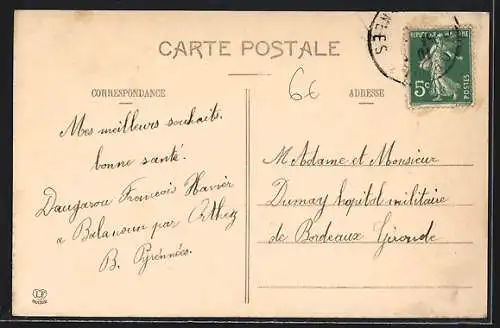 CARTE POSTALE
CORRESPONDANCE
Mes meilleurs souhaits.
bonne santé.
Daugarou François Xavier
a Balansun par Orthez
B. Pyrénnées.
66
ADRESSE
REPUBLIQUE FRANÇAISE
5c
POSTES
MAdame et Monsieur
Dumay hopital militaire
de Bordeaux Gironde